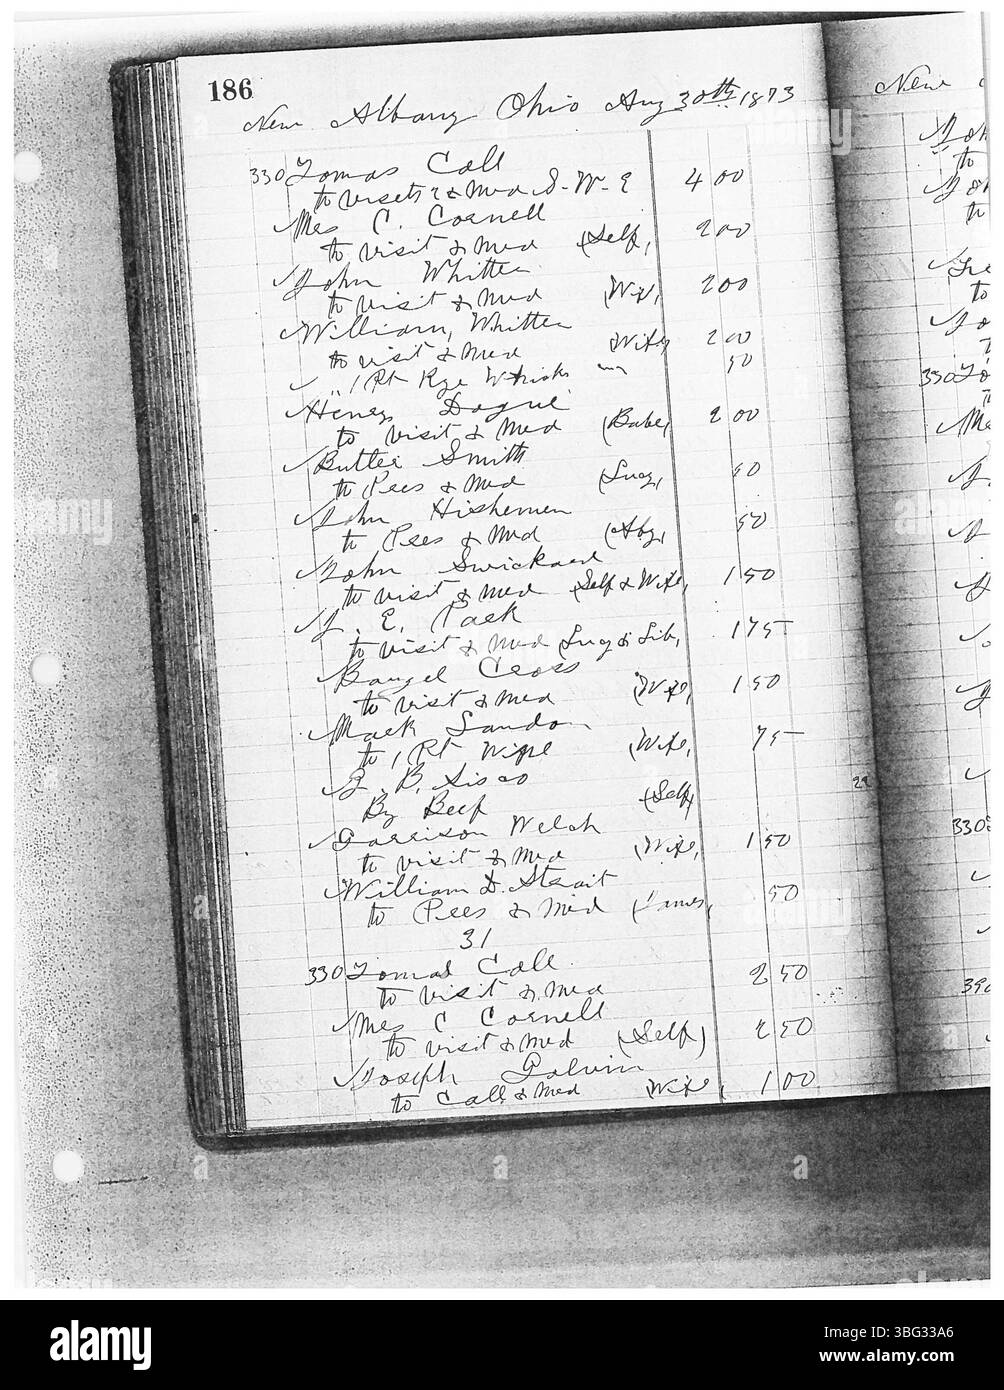 186
New Albany Ohio Aug 30th 1873
330 Tomas Call
to visets 2 & Med S. W. E 4 00
Mrs C. Cornell
to visit & Med (Self, 2 00
John Whitten
to visit & Med (Wife, 2 00
William, Whitten
to visit & Med (Wife, 2 00
" 1 Pt Rye Whisk 50
Henry Dague
to visit & Med (Babe, 2 00
Butler Smith
to Pres & Med (Lucy, 50
John
to Pres & Med 50
John Swickard
to visit & Med Self & Wife, 1 50
E. Park
to visit & Med (Lucy & Lib, 1 75
Cross
to visit & Med (Wife, 1 50
Mack Landon
to 1 Pt Wine (Wife, 75
B. Sisco
By Beef (Self,
Garrison Welch
to visit & Med (Wife, 1 50
William D. Strait
to Pres & Med (James, 50
31
330 Tomas Call
to visit & Med 2 50
Mrs C Cornell
to visit & Med (Self) 2 50
Joseph Galvin
to Call & Med (Wife, 1 00
29
New
330
330
390
alamy
Image ID: 3BG33A6
www.alamy.com